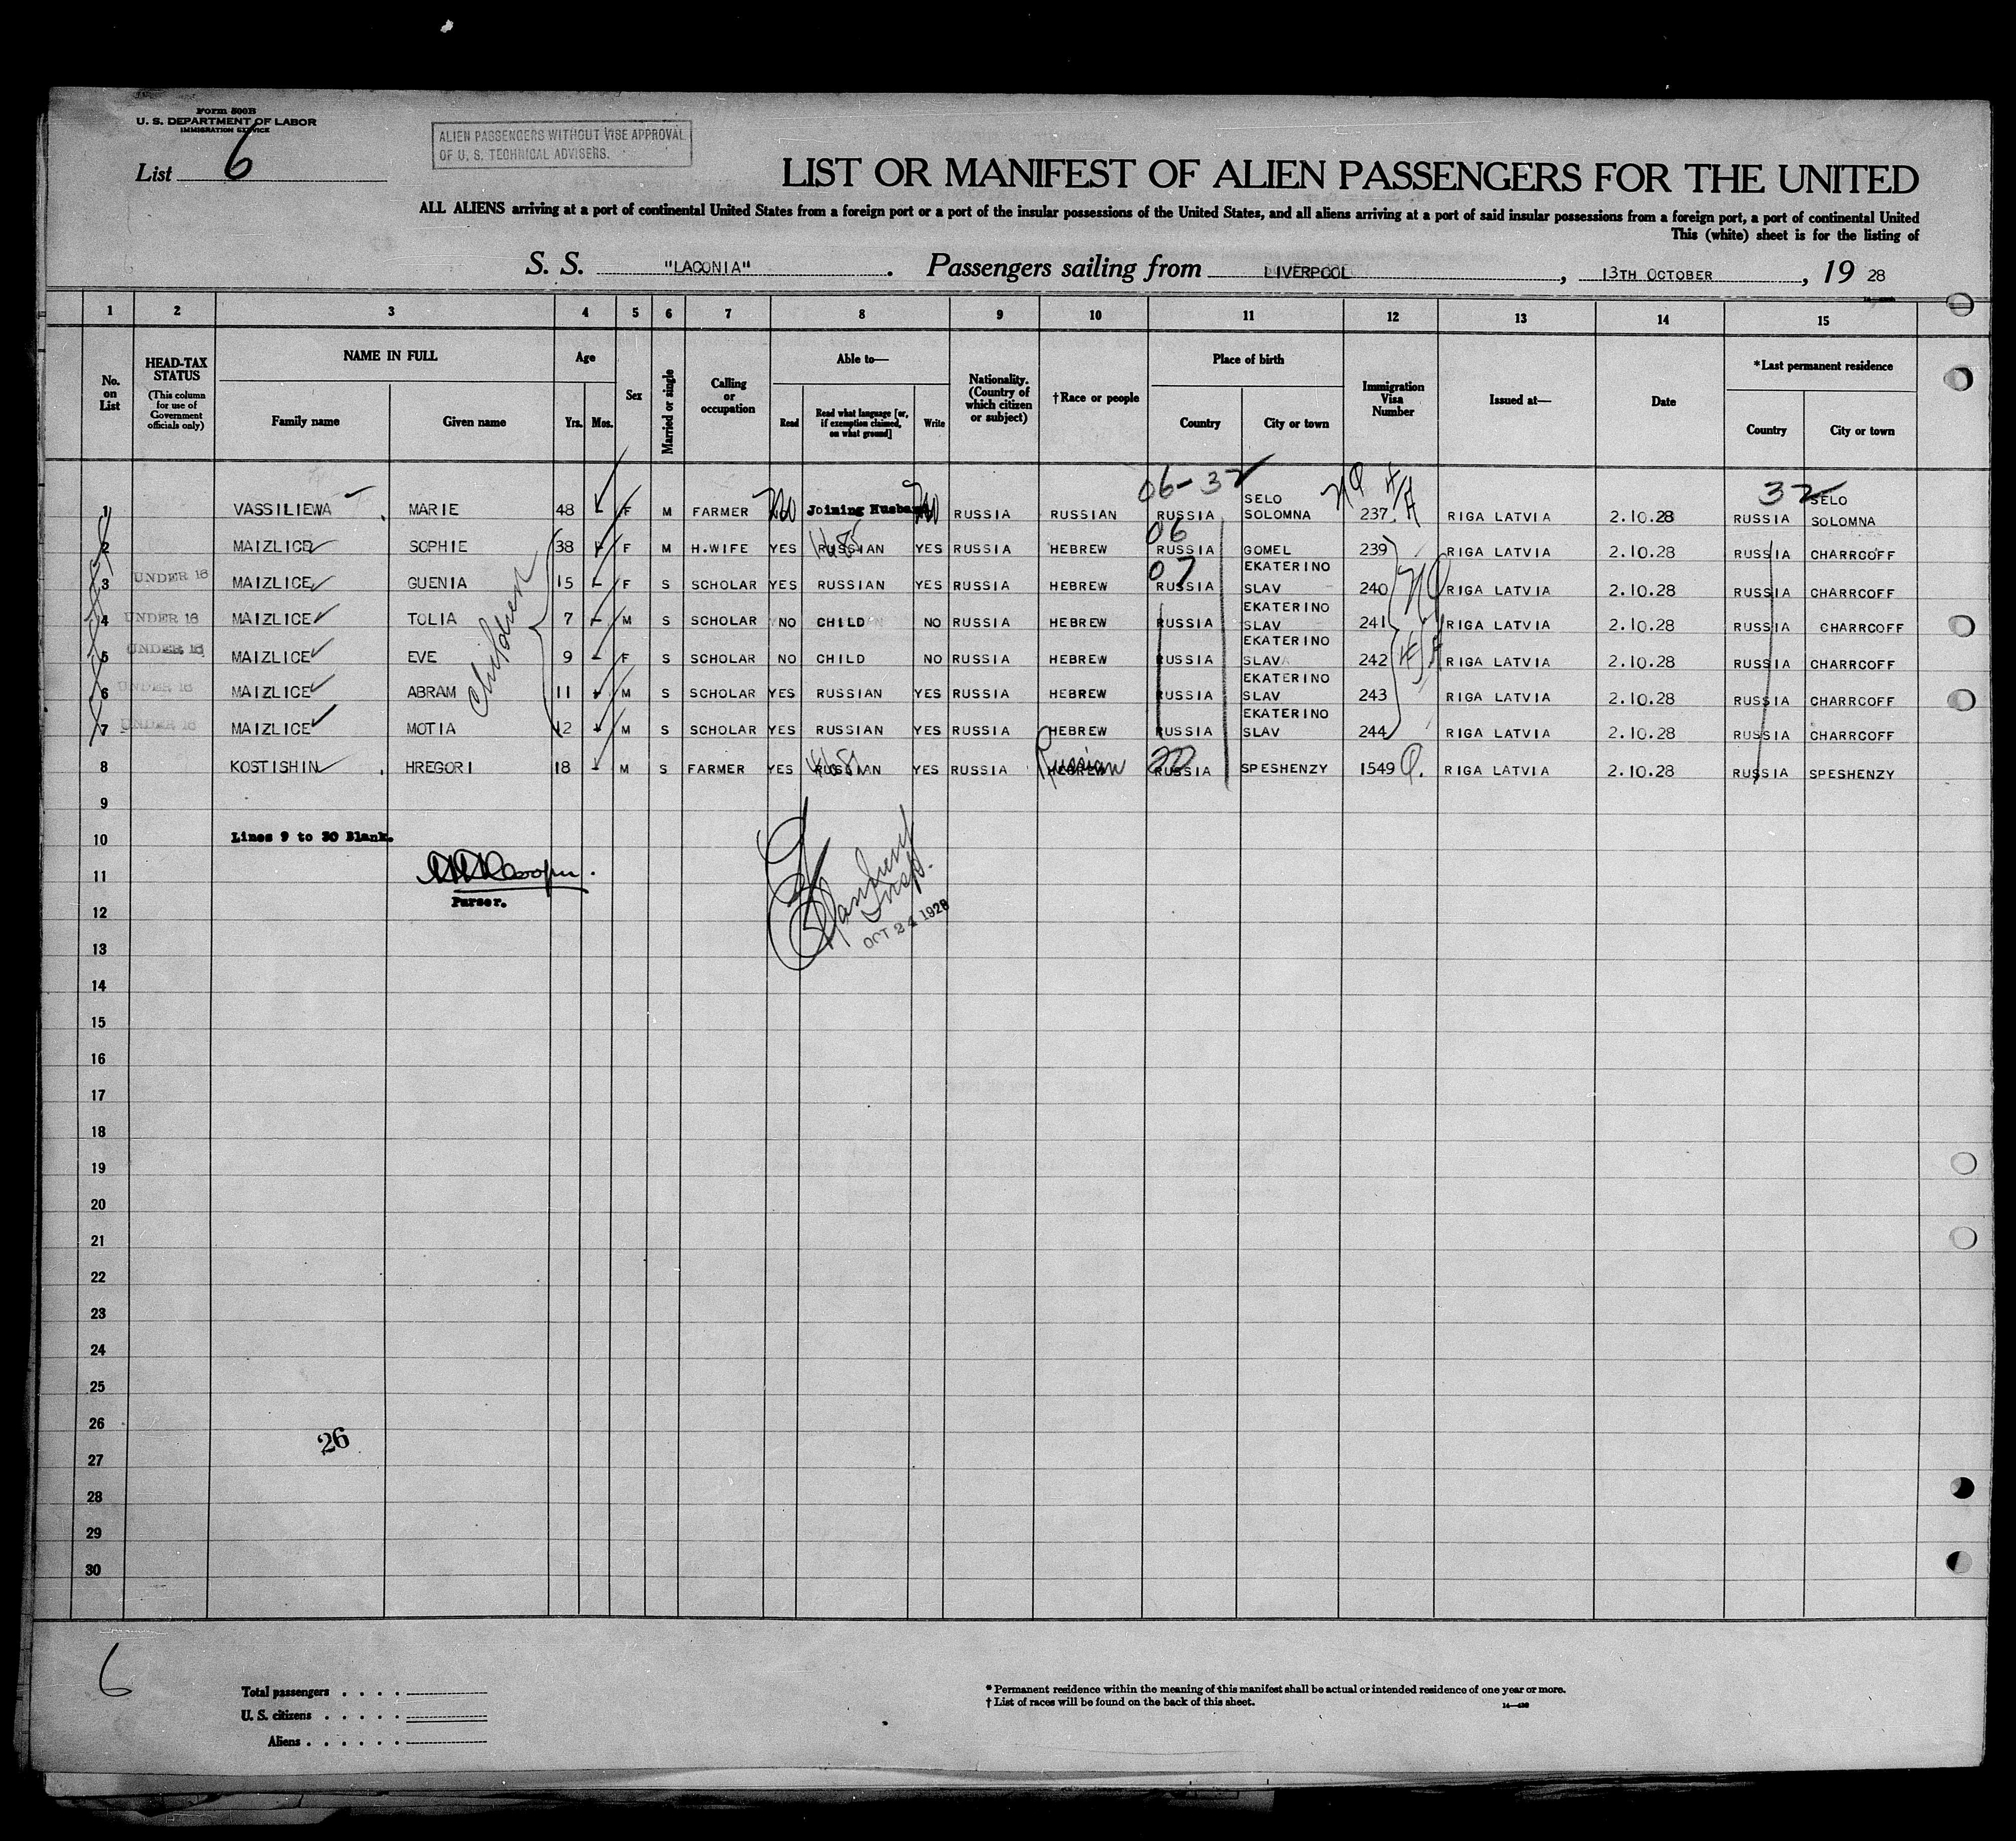 Form 500B
U. S. DEPARTMENT OF LABOR
IMMIGRATION SERVICE
List 6
ALIEN PASSENGERS WITHOUT VISE APPROVAL
OF U. S. TECHNICAL ADVISERS.
LIST OR MANIFEST OF ALIEN PASSENGERS FOR THE UNITED
ALL ALIENS arriving at a port of continental United States from a foreign port or a port of the insular possessions of the United States, and all aliens arriving at a port of said insular possessions from a foreign port, a port of continental United
This (white) sheet is for the listing of
S. S. "LACONIA" . Passengers sailing from LIVERPOOL , 13TH OCTOBER , 19 28
1 2 3 4 5 6 7 8 9 10 11 12 13 14 15
No. on List
HEAD-TAX STATUS (This column for use of Government officials only)
NAME IN FULL
Family name
Given name
Age
Yrs.
Mos.
Sex
Married or single
Calling or occupation
Able to—
Read
Read what language [or, if exemption claimed, on what ground]
Write
Nationality. (Country of which citizen or subject)
†Race or people
Place of birth
Country
City or town
Immigration Visa Number
Issued at—
Date
*Last permanent residence
Country
City or town
06-32 NQ 32
1 VASSILIEWA MARIE 48 F M FARMER No Joining Husband No RUSSIA RUSSIAN RUSSIA SELO SOLOMNA 237 RIGA LATVIA 2.10.28 RUSSIA SELO SOLOMNA
06
2 MAIZLICE SOPHIE 38 F M H.WIFE YES RUSSIAN YES RUSSIA HEBREW RUSSIA GOMEL 239 RIGA LATVIA 2.10.28 RUSSIA CHARRCOFF
07
3 UNDER 16 MAIZLICE GUENIA 15 F S SCHOLAR YES RUSSIAN YES RUSSIA HEBREW RUSSIA EKATERINO SLAV 240 RIGA LATVIA 2.10.28 RUSSIA CHARRCOFF
4 UNDER 16 MAIZLICE TOLIA 7 M S SCHOLAR NO CHILD NO RUSSIA HEBREW RUSSIA EKATERINO SLAV 241 RIGA LATVIA 2.10.28 RUSSIA CHARRCOFF
5 UNDER 16 MAIZLICE EVE 9 F S SCHOLAR NO CHILD NO RUSSIA HEBREW RUSSIA EKATERINO SLAV 242 RIGA LATVIA 2.10.28 RUSSIA CHARRCOFF
6 UNDER 16 MAIZLICE ABRAM 11 M S SCHOLAR YES RUSSIAN YES RUSSIA HEBREW RUSSIA EKATERINO SLAV 243 RIGA LATVIA 2.10.28 RUSSIA CHARRCOFF
7 UNDER 16 MAIZLICE MOTIA 12 M S SCHOLAR YES RUSSIAN YES RUSSIA HEBREW RUSSIA EKATERINO SLAV 244 RIGA LATVIA 2.10.28 RUSSIA CHARRCOFF
Children
8 KOSTISHIN HREGORI 18 M S FARMER YES RUSSIAN YES RUSSIA HEBREW Russian RUSSIA SPESHENZY 1549 Q. RIGA LATVIA 2.10.28 RUSSIA SPESHENZY
9
10 Lines 9 to 30 Blank.
11
Purser.
12
Insp.
OCT 24 1928
13
14
15
16
17
18
19
20
21
22
23
24
25
26
26
27
28
29
30
6
Total passengers
U. S. citizens
Aliens
* Permanent residence within the meaning of this manifest shall be actual or intended residence of one year or more.
† List of races will be found on the back of this sheet.